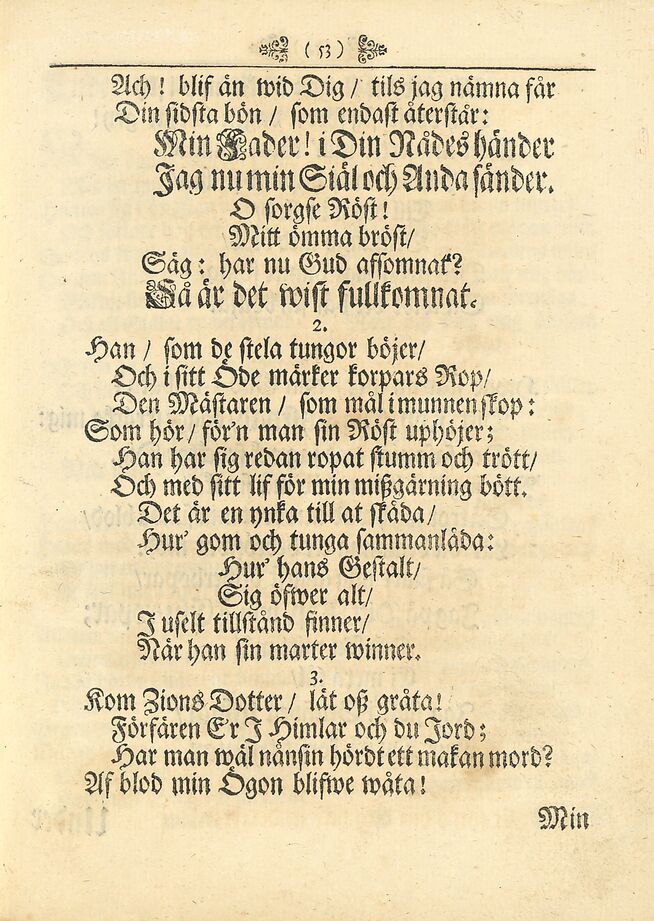 ( 53 )
Ach! blif än wid Dig / tils jag nämna får
Din sidsta bön / som endast återstår:
Min Fader! i Din Nådes händer
Jag nu min Siäl och Anda sänder.
O sorgse Röst!
Mitt ömma bröst/
Säg: har nu Gud afsomnat?
Så är det wist fullkomnat.
2.
Han / som de stela tungor böjer/
Och i sitt Öde märker korpars Rop/
Den Mästaren / som mål i munnen skop:
Som hör/ för'n man sin Röst uphöjer;
Han har sig redan ropat stumm och trött/
Och med sitt lif för min mißgärning bött.
Det är en ynka till at skåda/
Hur' gom och tunga sammanlåda:
Hur' hans Gestalt/
Sig öfwer alt/
I uselt tillstånd finner/
När han sin marter winner.
3.
Kom Zions Dotter / låt oß gråta!
Förfären Er J Himlar och du Jord;
Har man wäl nånsin hördt ett makan mord?
Af blod min Ögon blifwe wåta!
Min